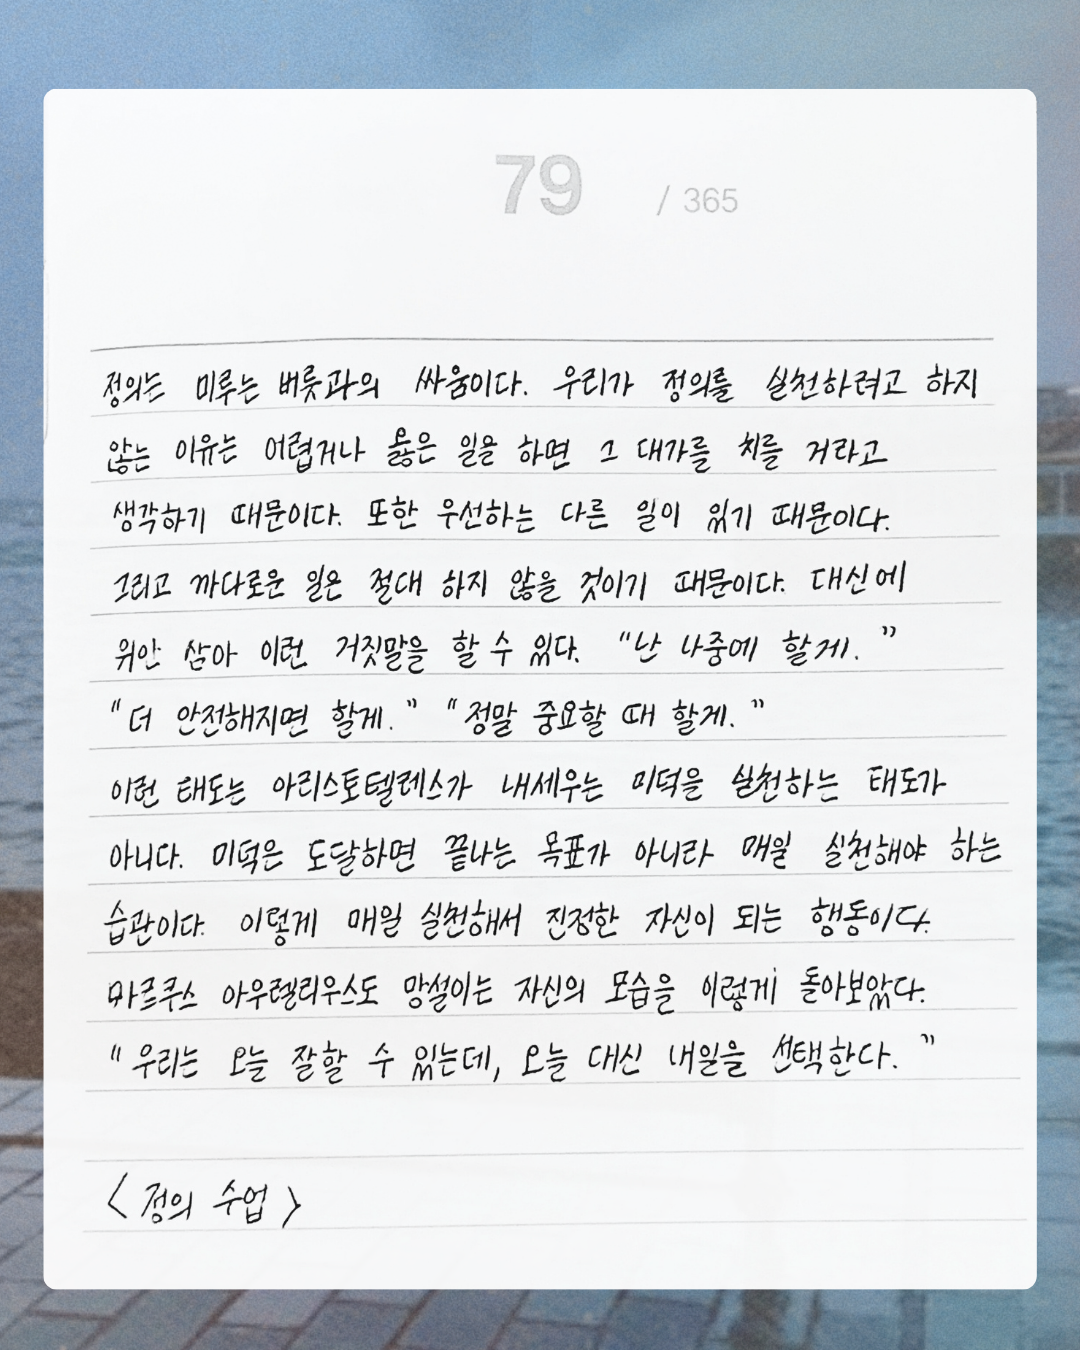 79 / 365
정의는 미루는 버릇과의 싸움이다. 우리가 정의를 실천하려고 하지
않는 이유는 어렵거나 옳은 일을 하면 그 대가를 치를 거라고
생각하기 때문이다. 또한 우선하는 다른 일이 있기 때문이다.
그리고 까다로운 일은 절대 하지 않을 것이기 때문이다. 대신에
위안 삼아 이런 거짓말을 할 수 있다. "난 나중에 할게."
"더 안전해지면 할게." "정말 중요할 때 할게."
이런 태도는 아리스토텔레스가 내세우는 미덕을 실천하는 태도가
아니다. 미덕은 도달하면 끝나는 목표가 아니라 매일 실천해야 하는
습관이다. 이렇게 매일 실천해서 진정한 자신이 되는 행동이다.
마르쿠스 아우렐리우스도 망설이는 자신의 모습을 이렇게 돌아보았다.
"우리는 오늘 잘할 수 있는데, 오늘 대신 내일을 선택한다."
<정의 수업>